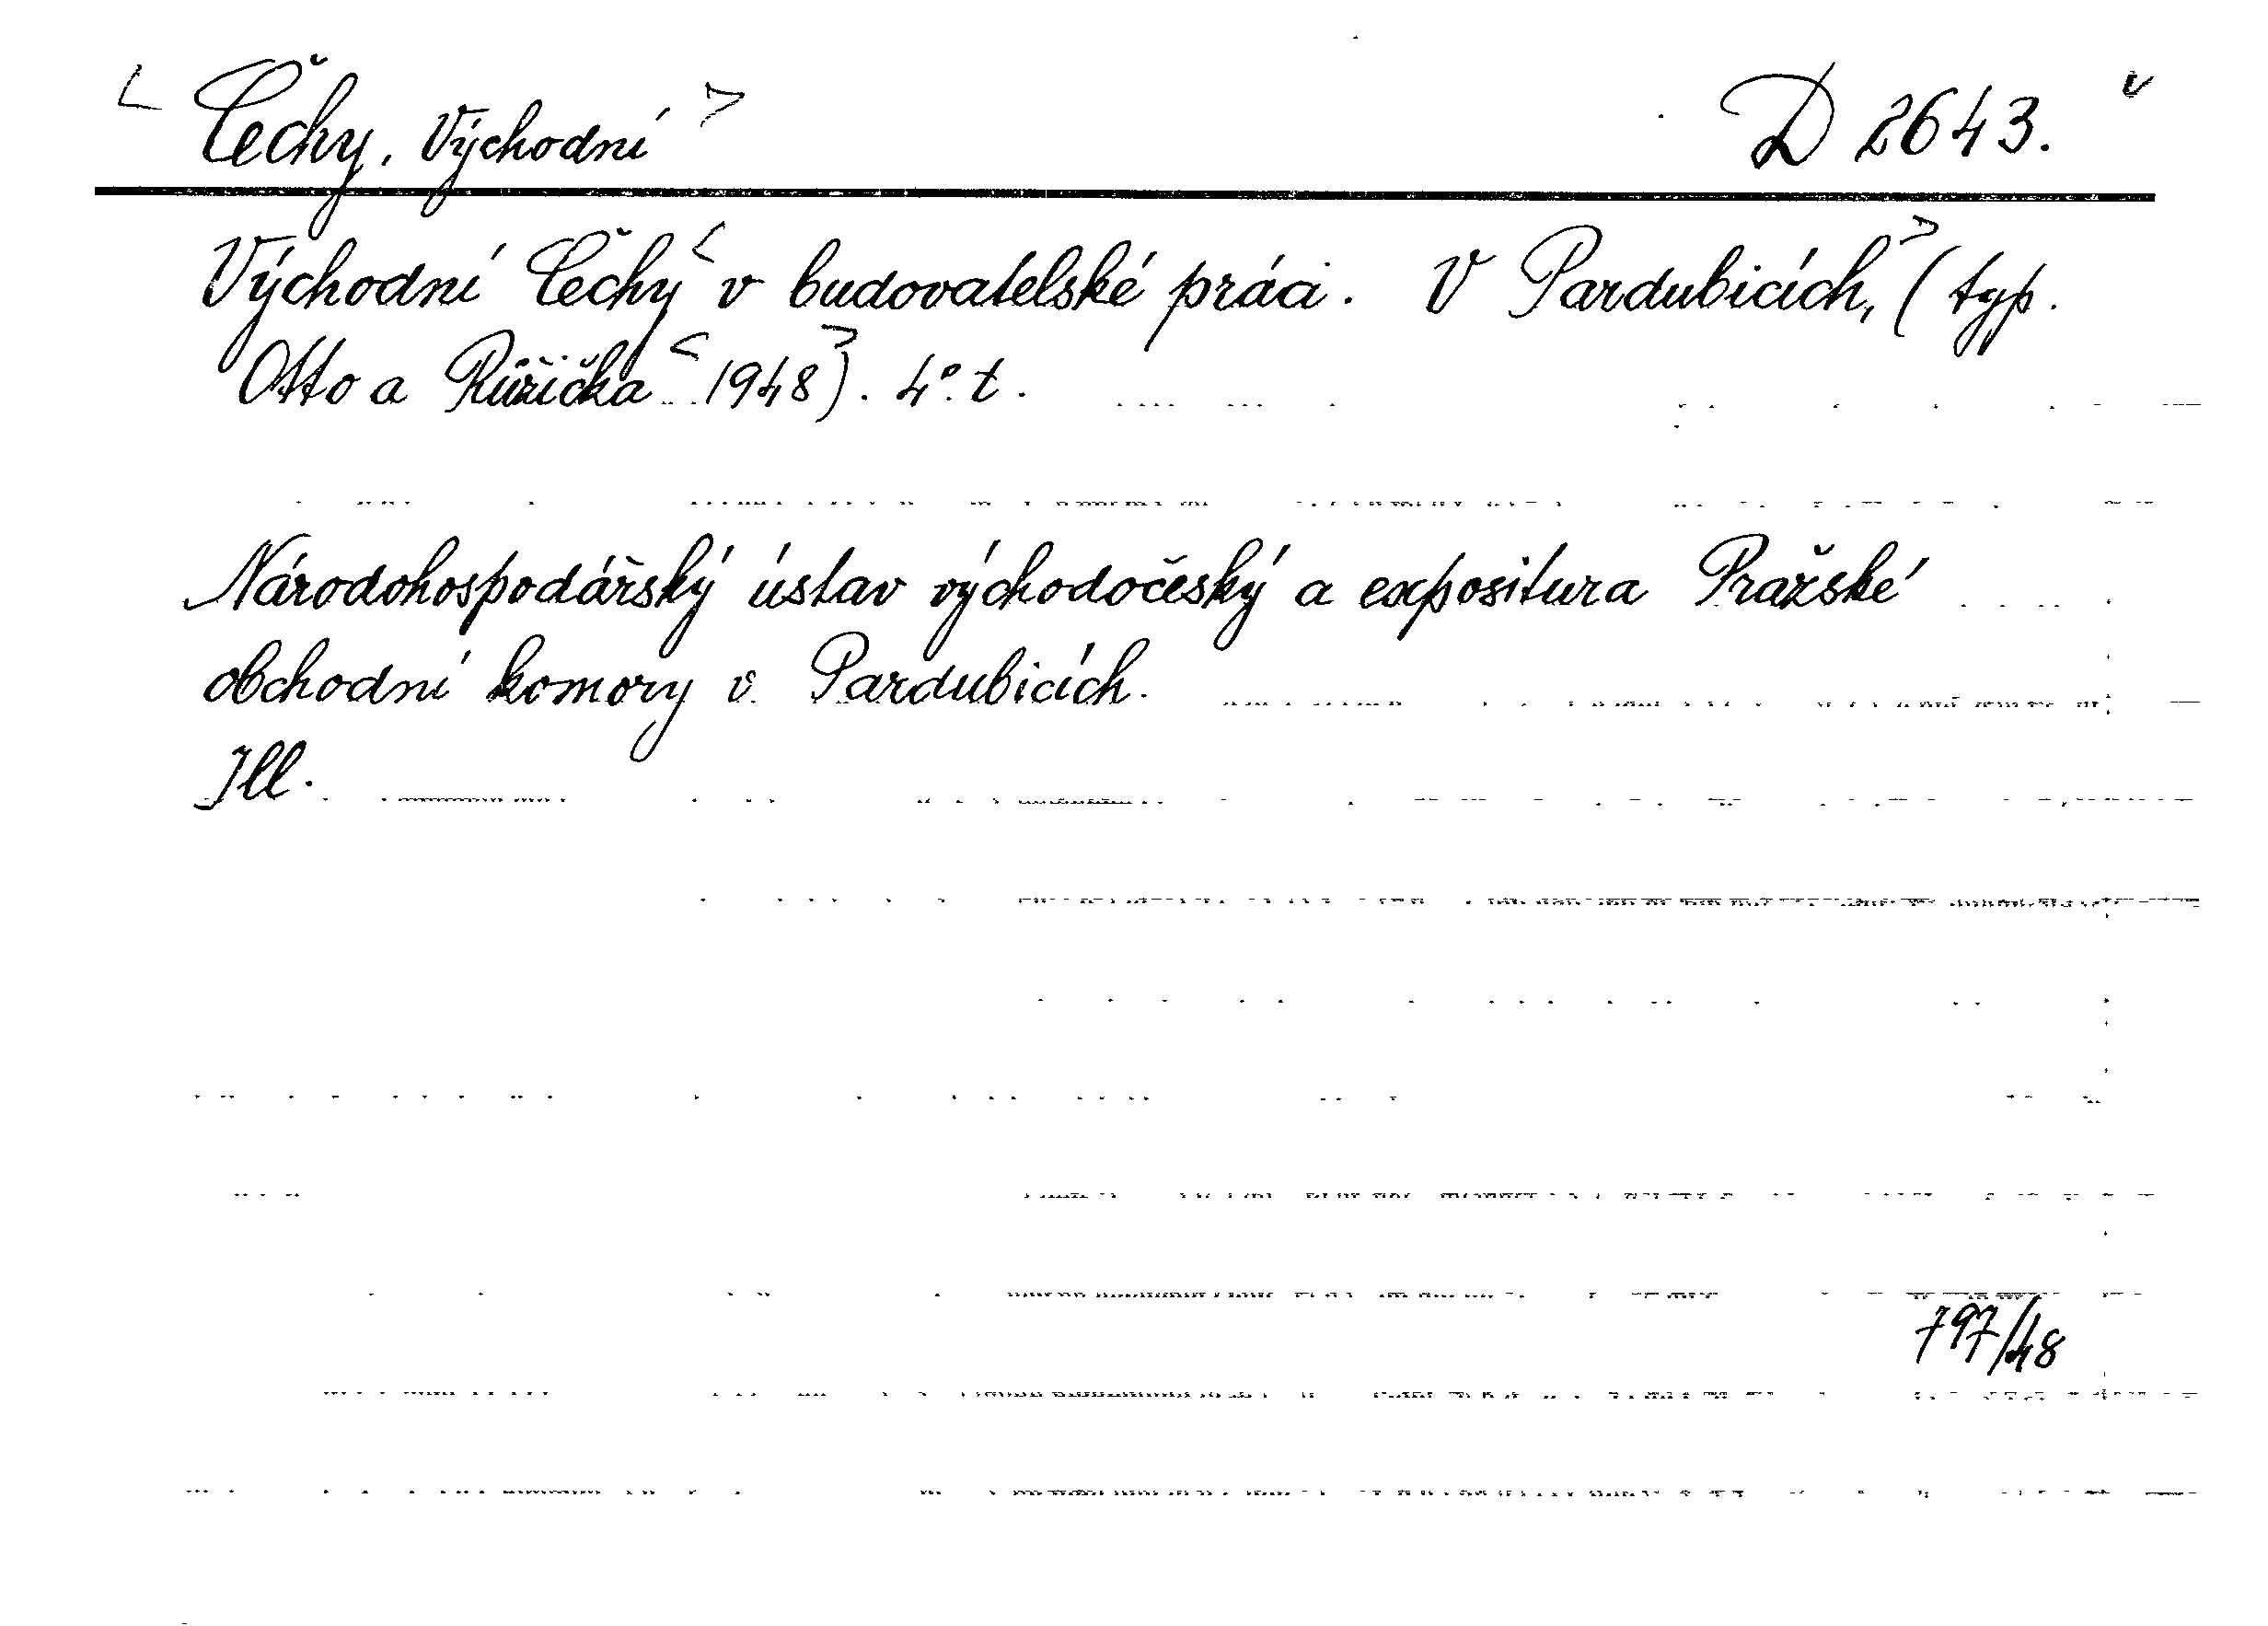 < Čechy, Východní > D 2643.
Východní Čechy < v budovatelské práci. V Pardubicích, > (typ.
Otto a Růžička < 1948 >). 4° t.
Národohospodářský ústav východočeský a expositura Pražské
obchodní komory v Pardubicích.
Ill.
797/48